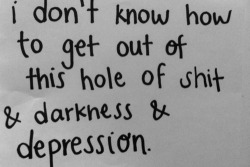 i don't know how
to get out of
this hole of shit
& darkness &
depression.